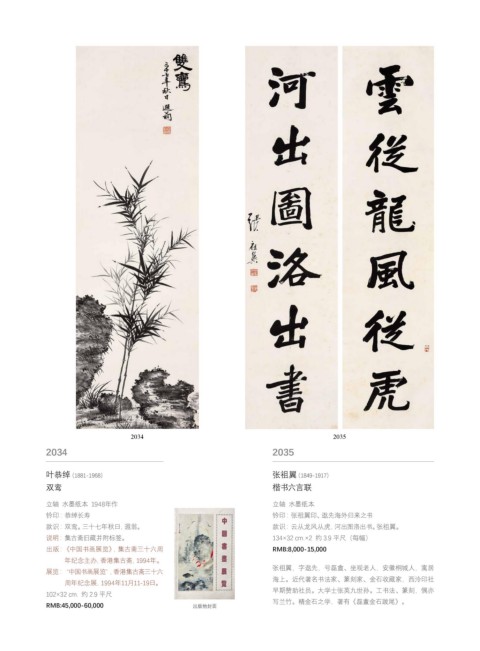 雙鸞
三十七年秋日 遐翁
雲從龍風從虎
河出圖洛出書
張祖翼
2034
2035
2034
叶恭绰 (1881-1968)
双鸾
立轴 水墨纸本 1948年作
钤印：恭绰长寿
款识：双鸾。三十七年秋日，遐翁。
说明：集古斋旧藏并附标签。
出版：《中国书画展览》，集古斋三十六周
年纪念主办·香港集古斋，1994年。
展览：“中国书画展览”，香港集古斋三十六
周年纪念展，1994年11月11-19日。
102×32 cm 约 2.9 平尺
RMB:45,000-60,000
中国书画展览
出版物封面
2035
张祖翼 (1849-1917)
楷书六言联
立轴 水墨纸本
钤印：张祖翼印、曾先海外归来之书
款识：云从龙风从虎，河出图洛出书。张祖翼。
134×32 cm ×2 约 3.9 平尺（每幅）
RMB:8,000-15,000
张祖翼，字逖先，号磊盦、坐观老人，安徽桐城人，寓居
海上。近代著名书法家、篆刻家、金石收藏家，西泠印社
早期赞助社员。大学士张英九世孙。工书法、篆刻，偶亦
写兰竹。精金石之学，著有《磊盦金石跋尾》。